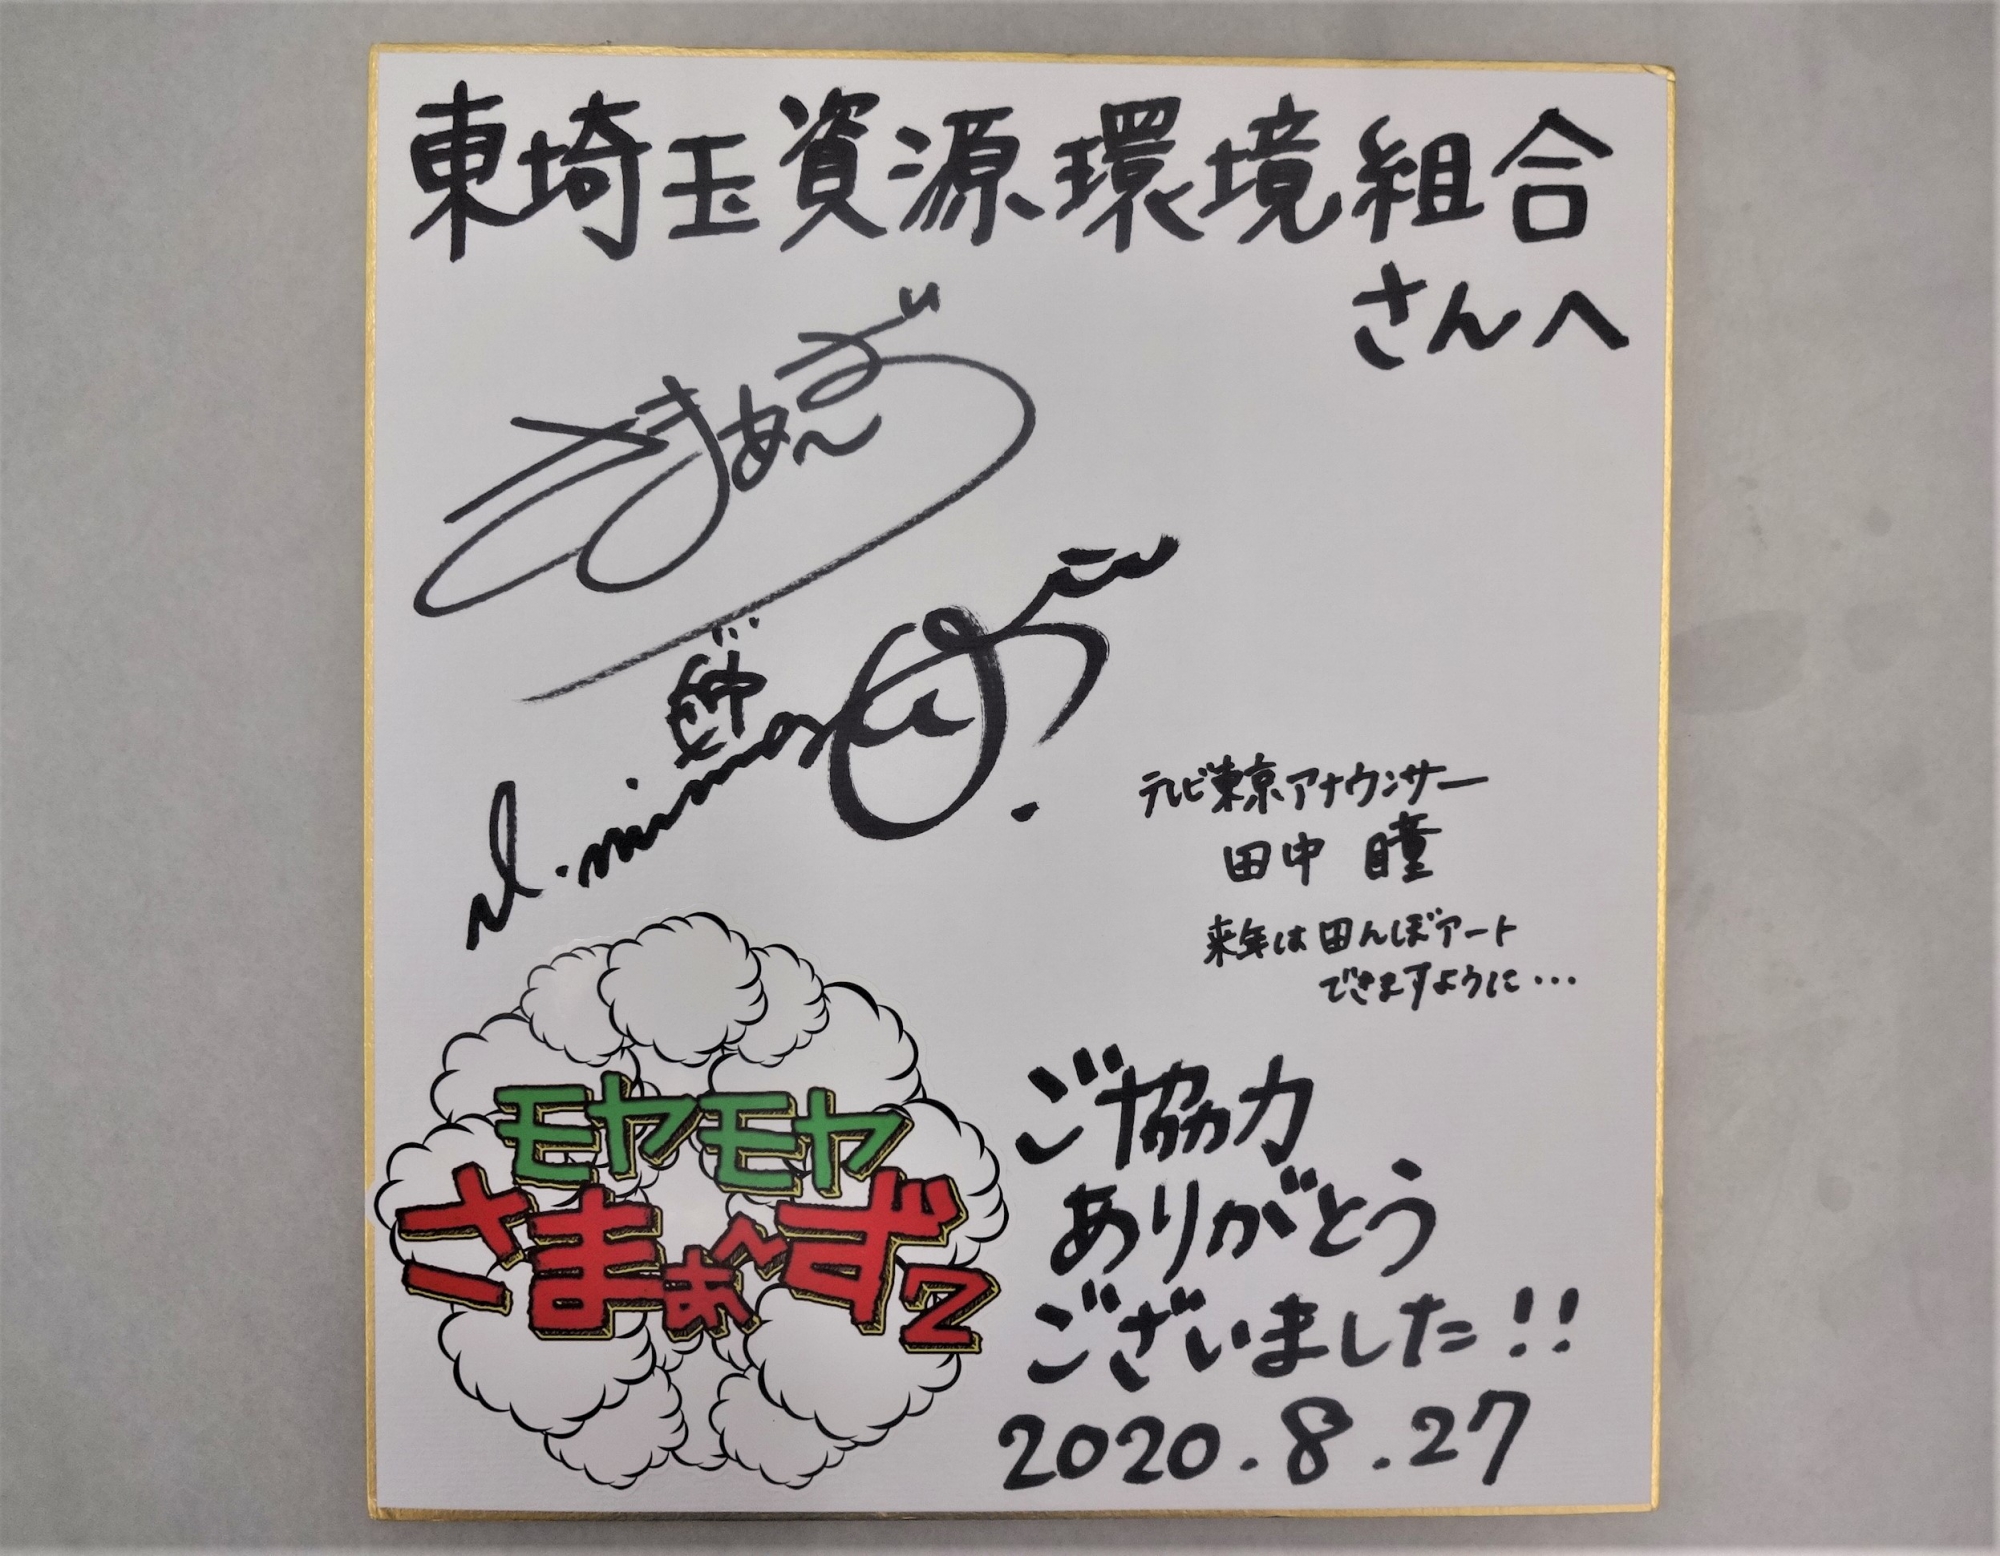 東埼玉資源環境組合
さんへ
さまぁ～ず
テレビ東京アナウンサー
田中 瞳
来年は田んぼアート
できますように…
モヤモヤ
さまぁ～ず2
ご協力
ありがとう
ございました!!
2020.8.27